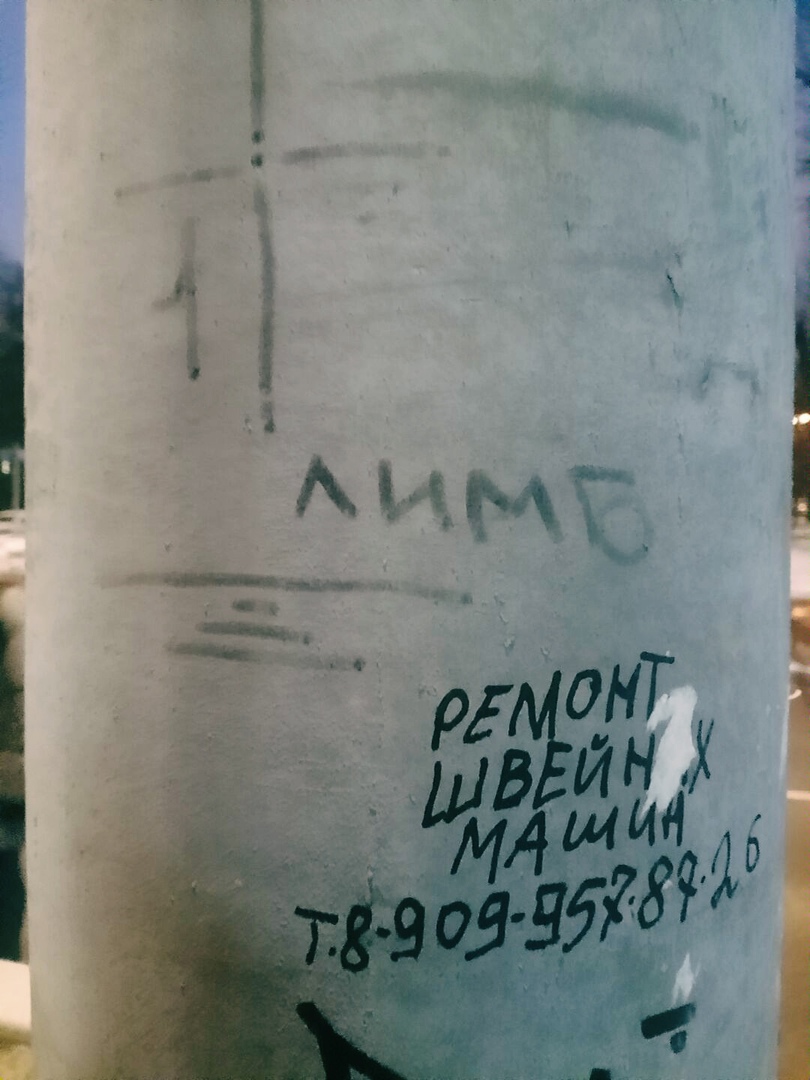 1
ЛИМБ
РЕМОНТ
ШВЕЙНЫХ
МАШИН
Т.8-909-957-87-26